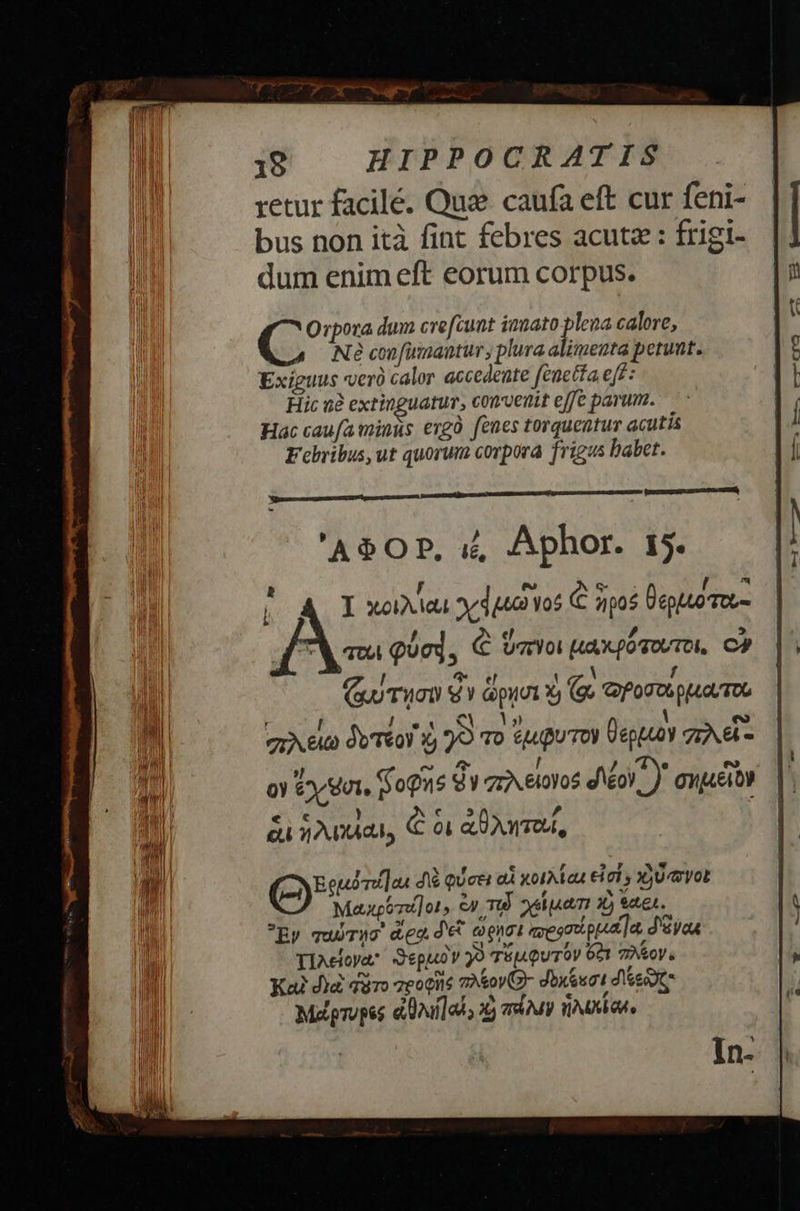 18 HIPPOCRATIS
retur facilé. Quæ cauſa eſt cur ſeni-
bus non ità ſint febres acutæ : frigi-
dum enim eſt eorum corpus.
COrpora dum creſcunt innato plena calore,
Nè conſumantur, plura alimenta petunt.
Exiguus verò calor accedente ſenecta eſt:
Hic nè extinguatur, convenit eſſe parum.
Hac cauſa minùs ergò ſenes torquentur acutis
Febribus, ut quorum corpora frigus habet.
ἈΦΟΡ. ιέ, Aphor. 15.
ΑΙ κοιλίαι χειμῶνος ϗ ἦρος θερμότα-
ται φύσει, ϗ ὕπνοι μακρότατοι, ἐν
ταύτησιν ἂν ὥρῃσι ϗ τὰ προσάρματα
πλείω δοτέον ϗ γὸ τὸ ἔμφυτον θερμὸν πλεῖ-
ον ἔχουσι, τροφῆς ἂν πλείονος δέον)· σημεῖον
αἱ ἡλικίαι, ϗ οἱ ἀθληταί,
ΘΕρμότα]αι δὲ φύσει αἱ κοιλίαι εἰσὶ, ϗ ὕπνοι
Μακρότα]οι, ἐν τῷ χείματι ϗ ἔαρι.
Ἐν ταύτῃσ' ἄρα δεῖ ὥρῃσι προσάρμα]α δοῦναι
Πλείονα· θερμὸν γὸ τἔμφυτόν ὅτι πλέον.
Καὶ διὰ τοῦτο τροφῆς πλέον(ος) δοκέουσι δέεσθ·
Μάρτυρες ἀθλη]αὶ, ϗ πάλιν ἡλικίαι.
In-